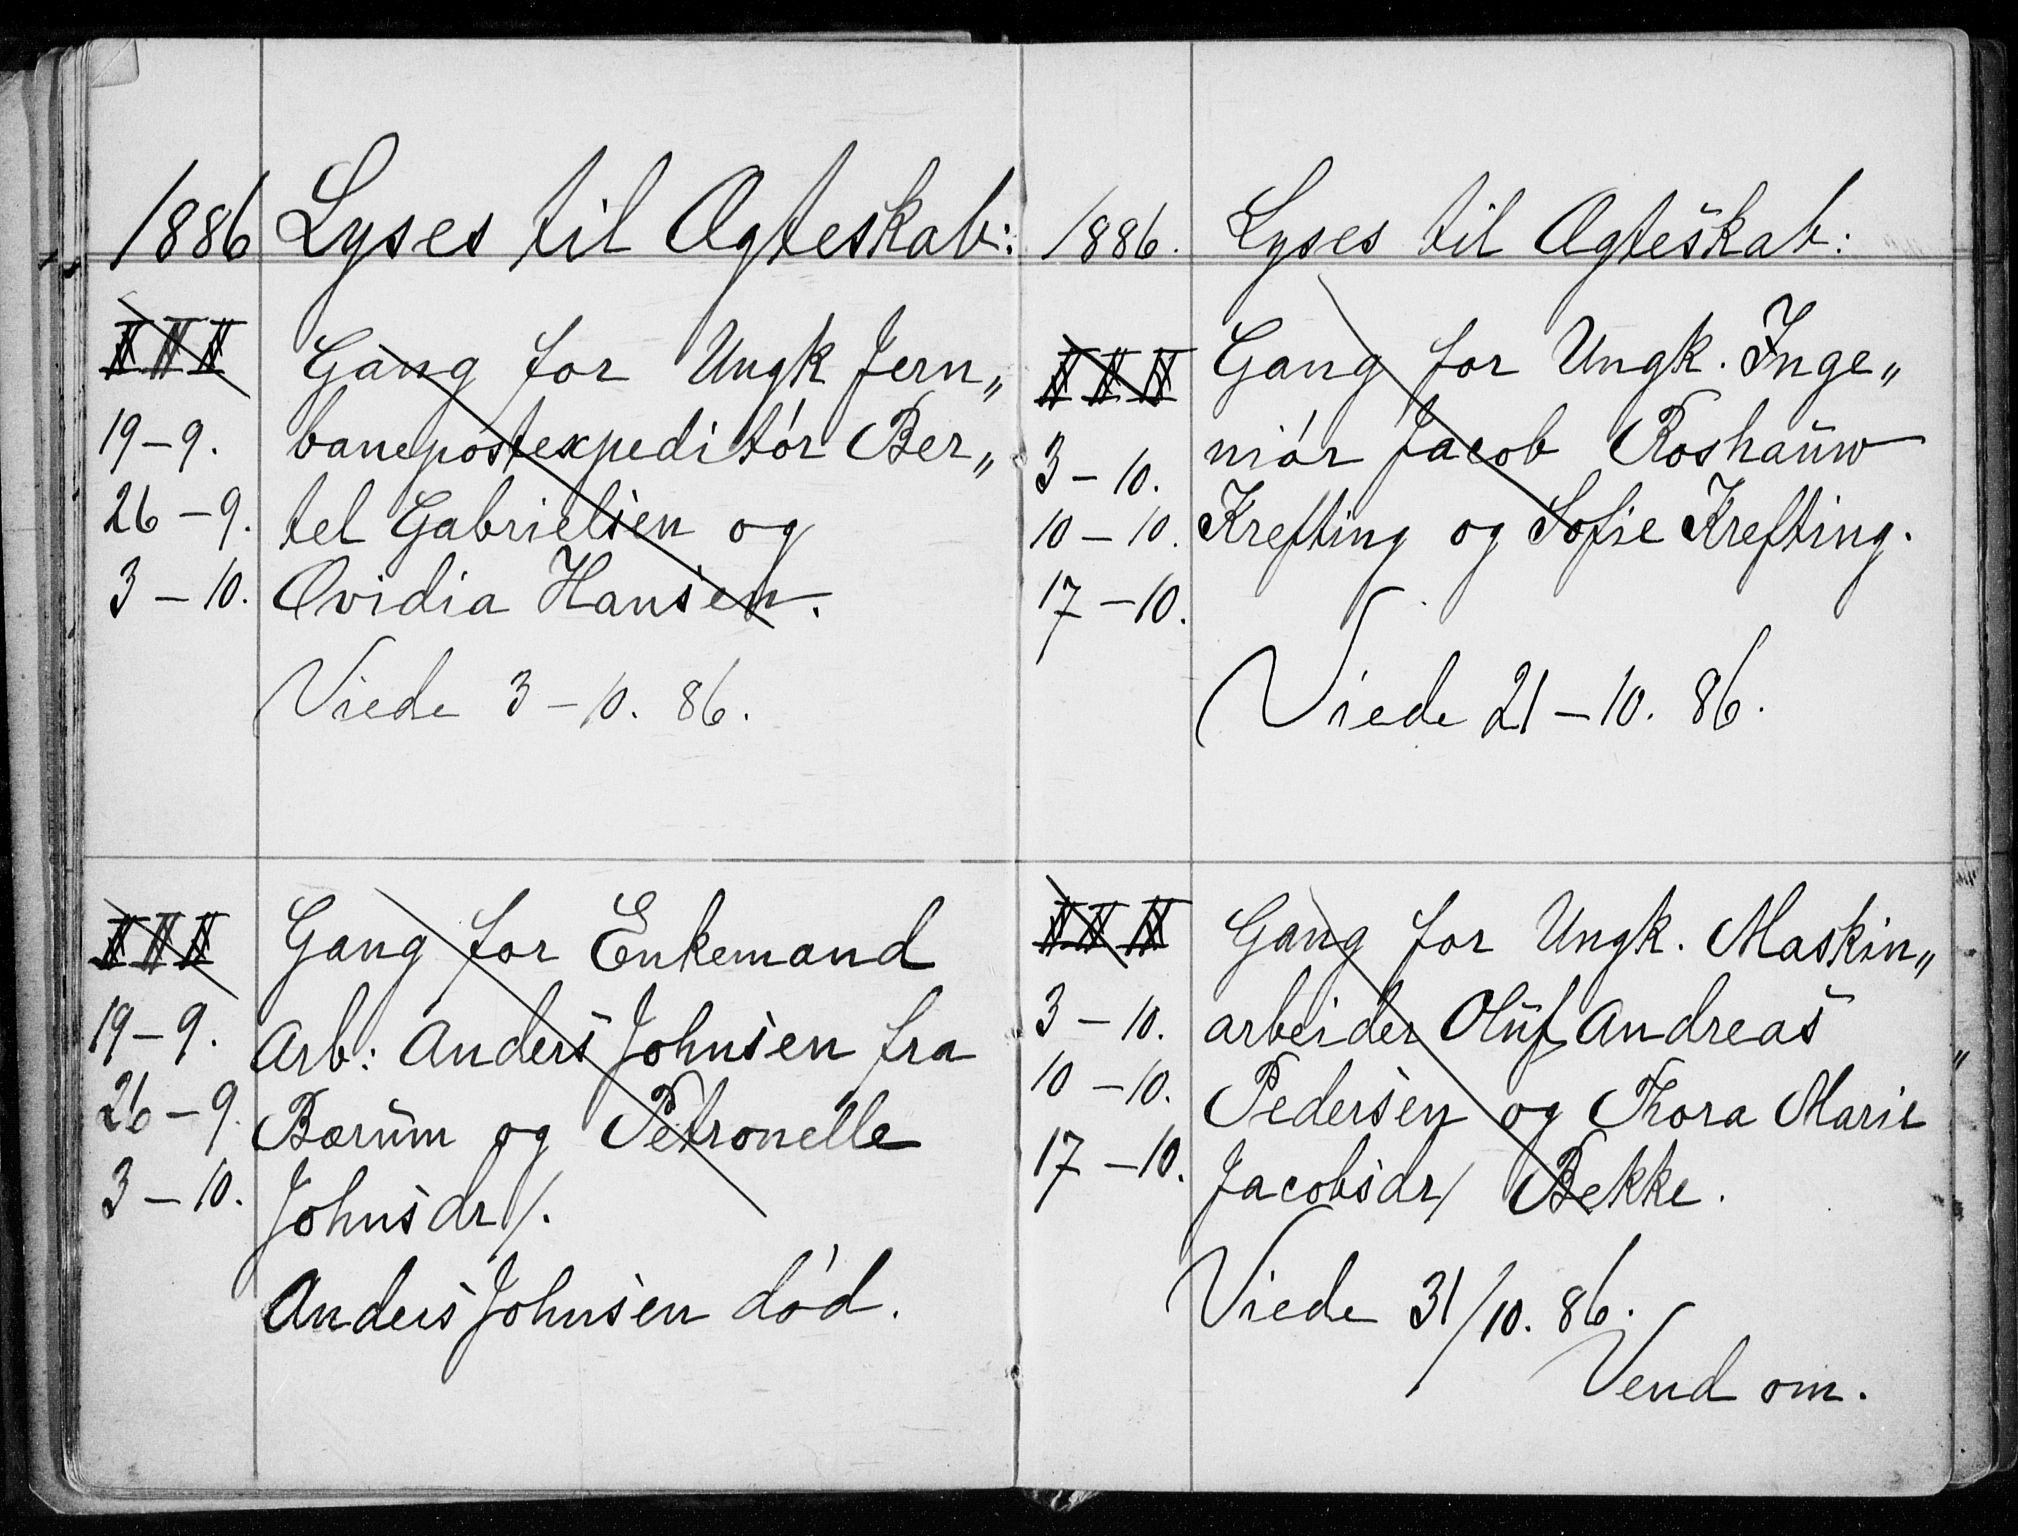 1886 Lyses til Ægteskab:
I II III
Gang for Ungk Jern„
19–9. banepostexpeditór Ber„
26–9. tel Gabrielsen og
3–10. Ovidia Hansen.
Viede 3–10. 86.
I II III
Gang for Enkemand
19–9. Arb: Anders Johnsen fra
26–9. Bærŭm og Petronelle
3–10. Johnsdr/.
Anders Johnsen død.
1886. Lyses til Ægteskab:
I II III
Gang for Ungk. Inge„
3–10. niór Jacob Roshaŭw
10–10. Krefting og Sofie Krefting.
17–10.
Viede 21–10. 86.
I II III
Gang for Ungk. Maskin„
3–10. arbeider Olŭf Andreas
10–10. Pedersen og Thora Marie
17–10. Jacobsdr/ Bekke.
Viede 31/10. 86.
Vend om.